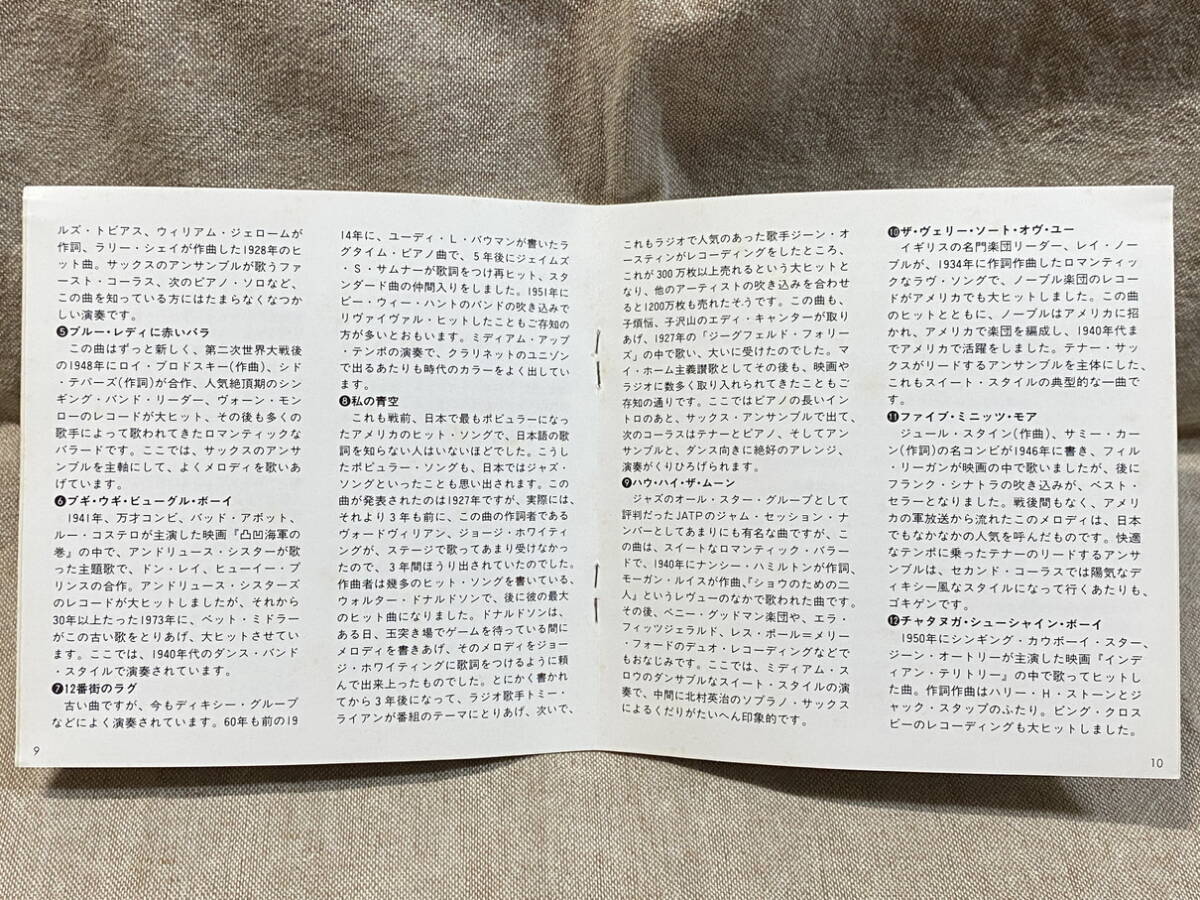 ルズ・トビアス、ウィリアム・ジェロームが
作詞、ラリー・シェイが作曲した1928年のヒ
ット曲。サックスのアンサンブルが歌うファ
ースト・コーラス、次のピアノ・ソロなど、
この曲を知っている方にはたまらなくなつか
しい演奏です。
❺ブルー・レディに赤いバラ
この曲はずっと新しく、第二次世界大戦後
の1948年にロイ・ブロドスキー(作曲)、シド
・テパーズ(作詞)が合作、人気絶頂期のシン
ギング・バンド・リーダー、ヴォーン・モン
ローのレコードが大ヒット、その後も多くの
歌手によって歌われてきたロマンティックな
バラードです。ここでは、サックスのアンサ
ンブルを主軸にして、よくメロディを歌いあ
げています。
❻ブギ・ウギ・ビューグル・ボーイ
1941年、万才コンビ、バッド・アボット、
ルー・コステロが主演した映画『凸凹海軍の
巻』の中で、アンドリュース・シスターが歌
った主題歌で、ドン・レイ、ヒューイー・プ
リンスの合作。アンドリュース・シスターズ
のレコードが大ヒットしましたが、それから
30年以上たった1973年に、ベット・ミドラー
がこの古い歌をとりあげ、大ヒットさせてい
ます。ここでは、1940年代のダンス・バンド
・スタイルで演奏されています。
❼12番街のラグ
古い曲ですが、今もディキシー・グループ
などによく演奏されています。60年も前の19
9
14年に、ユーディ・L・バウマンが書いたラ
グタイム・ピアノ曲で、5年後にジェイムズ
・S・サムナーが歌詞をつけ再ヒット、スタ
ンダード曲の仲間入りをしました。1951年に
ピー・ウィー・ハントのバンドの吹き込みで
リヴァイヴァル・ヒットしたこともご存知の
方が多いとおもいます。ミディアム・アップ
・テンポの演奏で、クラリネットのユニゾン
で出るあたりも時代のカラーをよく出してい
ます。
❽私の青空
これも戦前、日本で最もポピュラーになっ
たアメリカのヒット・ソングで、日本語の歌
詞を知らない人はいないほどでした。こうし
たポピュラー・ソングも、日本ではジャズ・
ソングといったことも思い出されます。この
曲が発表されたのは1927年ですが、実際には、
それより3年も前に、この曲の作詞者である
ヴォードヴィリアン、ジョージ・ホワイティ
ングが、ステージで歌ってあまり受けなかっ
たので、3年間ほうり出されていたのでした。
作曲者は幾多のヒット・ソングを書いている、
ウォルター・ドナルドソンで、後に彼の最大
のヒット曲になりました。ドナルドソンは、
ある日、玉突き場でゲームを待っている間に
メロディを書きあげ、そのメロディをジョー
ジ・ホワイティングに歌詞をつけるように頼
んで出来上ったものでした。とにかく書かれ
てから3年後になって、ラジオ歌手トミー・
ライアンが番組のテーマにとりあげ、次いで、
これもラジオで人気のあった歌手ジーン・オ
ースティンがレコーディングをしたところ、
これが300万枚以上売れるという大ヒットと
なり、他のアーティストの吹き込みを合わせ
ると1200万枚も売れたそうです。この曲も、
子煩悩、子沢山のエディ・キャンターが取り
あげ、1927年の「ジーグフェルド・フォリー
ズ」の中で歌い、大いに受けたのでした。マ
イ・ホーム主義讃歌としてその後も、映画や
ラジオに数多く取り入れられてきたこともご
存知の通りです。ここではピアノの長いイン
トロのあと、サックス・アンサンブルで出て、
次のコーラスはテナーとピアノ、そしてアン
サンブルと、ダンス向きに絶好のアレンジ、
演奏がくりひろげられます。
❾ハウ・ハイ・ザ・ムーン
ジャズのオール・スター・グループとして
評判だったJATPのジャム・セッション・ナ
ンバーとしてあまりにも有名な曲ですが、こ
の曲は、スイートなロマンティック・バラー
ドで、1940年にナンシー・ハミルトンが作詞、
モーガン・ルイスが作曲、『ショウのための二
人』というレヴューのなかで歌われた曲です。
その後、ベニー・グッドマン楽団や、エラ・
フィッツジェラルド、レス・ポール=メリー
・フォードのデュオ・レコーディングなどで
もおなじみです。ここでは、ミディアム・ス
ロウのダンサブルなスイート・スタイルの演
奏で、中間に北村英治のソプラノ・サックス
によるくだりがたいへん印象的です。
❿ザ・ヴェリー・ソート・オヴ・ユー
イギリスの名門楽団リーダー、レイ・ノー
ブルが、1934年に作詞作曲したロマンティッ
クなラヴ・ソングで、ノーブル楽団のレコー
ドがアメリカでも大ヒットしました。この曲
のヒットとともに、ノーブルはアメリカに招
かれ、アメリカで楽団を編成し、1940年代ま
でアメリカで活躍をしました。テナー・サッ
クスがリードするアンサンブルを主体にした、
これもスイート・スタイルの典型的な一曲で
す。
⓫ファイブ・ミニッツ・モア
ジュール・スタイン(作曲)、サミー・カー
ン(作詞)の名コンビが1946年に書き、フィル
・リーガンが映画の中で歌いましたが、後に
フランク・シナトラの吹き込みが、ベスト・
セラーとなりました。戦後間もなく、アメリ
カの軍放送から流れたこのメロディは、日本
でもなかなかの人気を呼んだものです。快適
なテンポに乗ったテナーのリードするアンサ
ンブルは、セカンド・コーラスでは陽気なデ
ィキシー風なスタイルになって行くあたりも、
ゴキゲンです。
⓬チャタヌガ・シューシャイン・ボーイ
1950年にシンギング・カウボーイ・スター、
ジーン・オートリーが主演した映画『インデ
ィアン・テリトリー』の中で歌ってヒットし
た曲。作詞作曲はハリー・H・ストーンとジ
ャック・スタップのふたり。ビング・クロス
ビーのレコーディングも大ヒットしました。
10